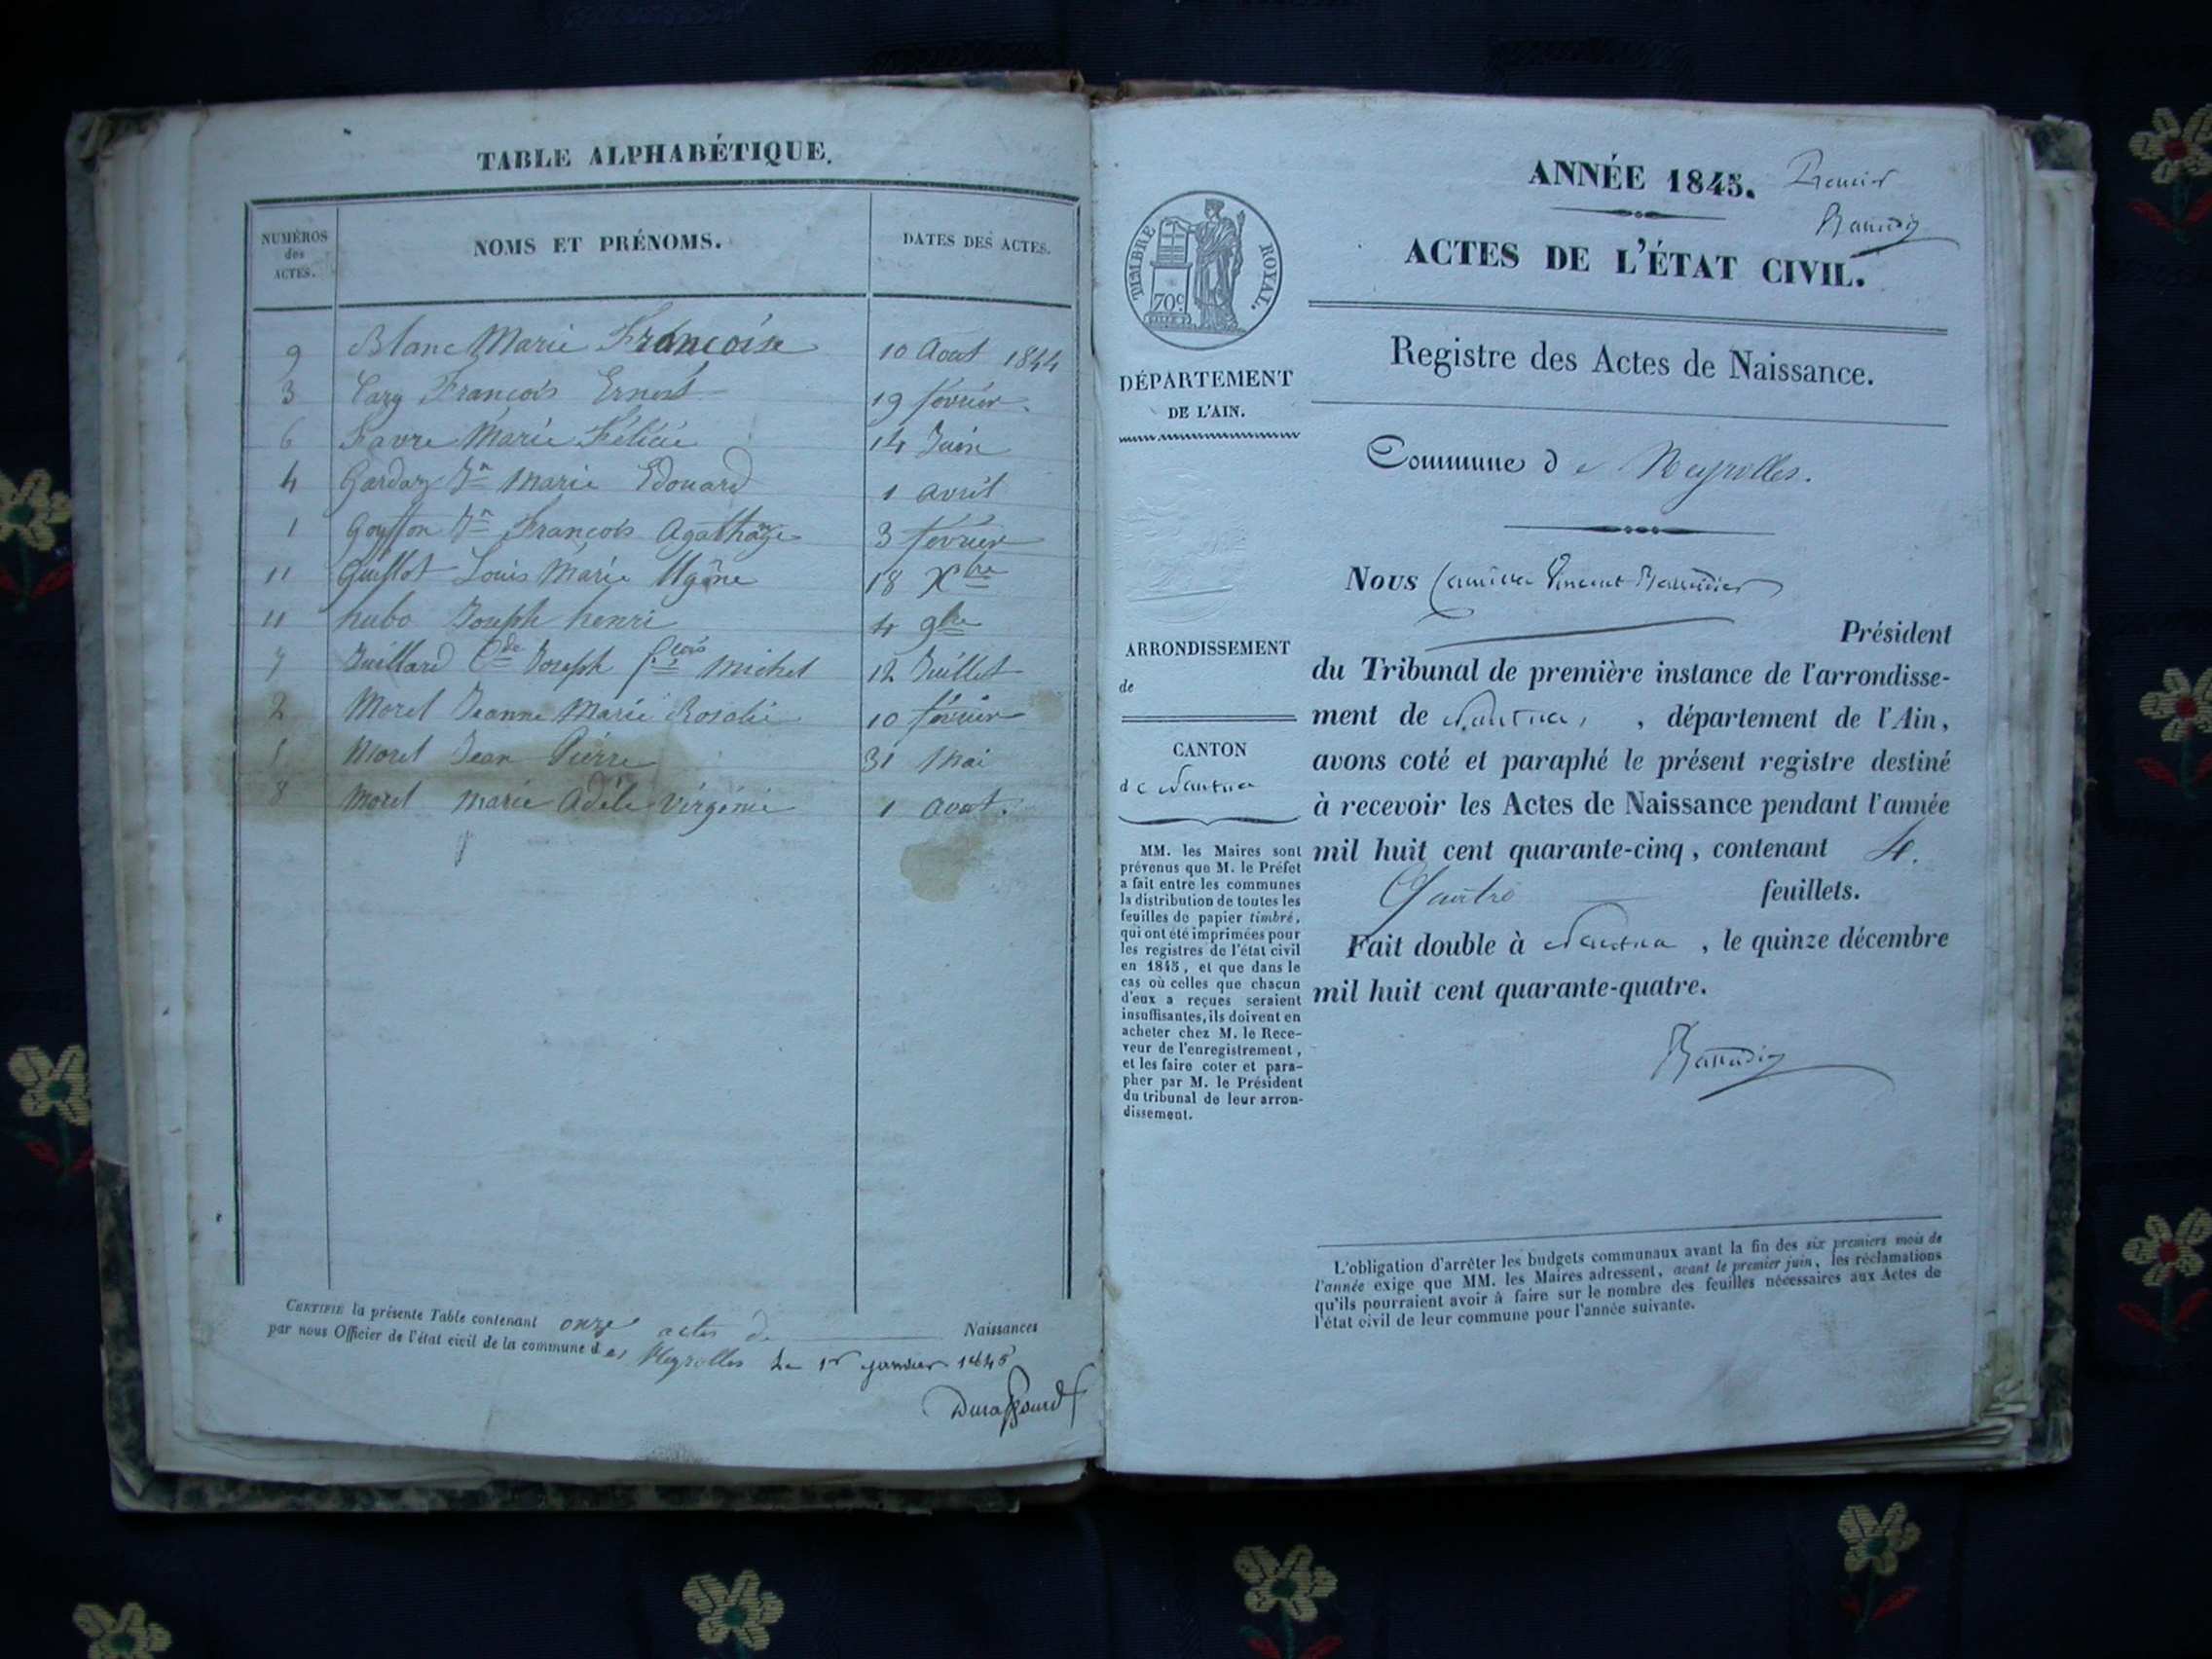 TABLE ALPHABÉTIQUE.
NUMÉROS des ACTES. NOMS ET PRÉNOMS. DATES DES ACTES.
9 Blanc Marie Francoise 10 Aout 1844
3 Cary François Ernest 19 février
6 Favre Marie Félicie 14 Juin
4 Gardaz Jn Marie Edouard 1 avril
1 Goyffon Jn François 3 février
11 Guillot Louis Marie Ugène 18 Xbre
hubo Joseph henri 4 9bre
7 Juillard Cde Joseph fçois michel 12 Juillet
2 Morel Jeanne Marie Rosalie 10 février
5 Morel Jean Pierre 31 Mai
8 Morel marie Adèle virginie 1 aout.
CERTIFIÉ la présente Table contenant onze actes de Naissances
par nous Officier de l'état civil de la commune des Neyrolles Le 1r janvier 1845
Durafourd
ANNÉE 1845. Premier
ACTES DE L'ÉTAT CIVIL.
TIMBRE ROYAL.
70c
Registre des Actes de Naissance.
DÉPARTEMENT
DE L'AIN.
Commune de Neyrolles.
Nous Camille Vincent
Président
ARRONDISSEMENT
de
du Tribunal de première instance de l'arrondisse-
ment de Nantua, , département de l'Ain,
avons coté et paraphé le présent registre destiné
à recevoir les Actes de Naissance pendant l'année
mil huit cent quarante-cinq, contenant 4.
Quatre feuillets.
Fait double à Nantua, le quinze décembre
mil huit cent quarante-quatre.
CANTON
de Nantua
MM. les Maires sont
prévenus que M. le Préfet
a fait entre les communes
la distribution de toutes les
feuilles de papier timbré,
qui ont été imprimées pour
les registres de l'état civil
en 1845, et que dans le
cas où celles que chacun
d'eux a reçues seraient
insuffisantes, ils doivent en
acheter chez M. le Rece-
veur de l'enregistrement,
et les faire coter et para-
pher par M. le Président
du tribunal de leur arron-
dissement.
L'obligation d'arrêter les budgets communaux avant la fin des six premiers mois de
l'année exige que MM. les Maires adressent, avant le premier juin, les réclamations
qu'ils pourraient avoir à faire sur le nombre des feuilles nécessaires aux Actes de
l'état civil de leur commune pour l'année suivante.